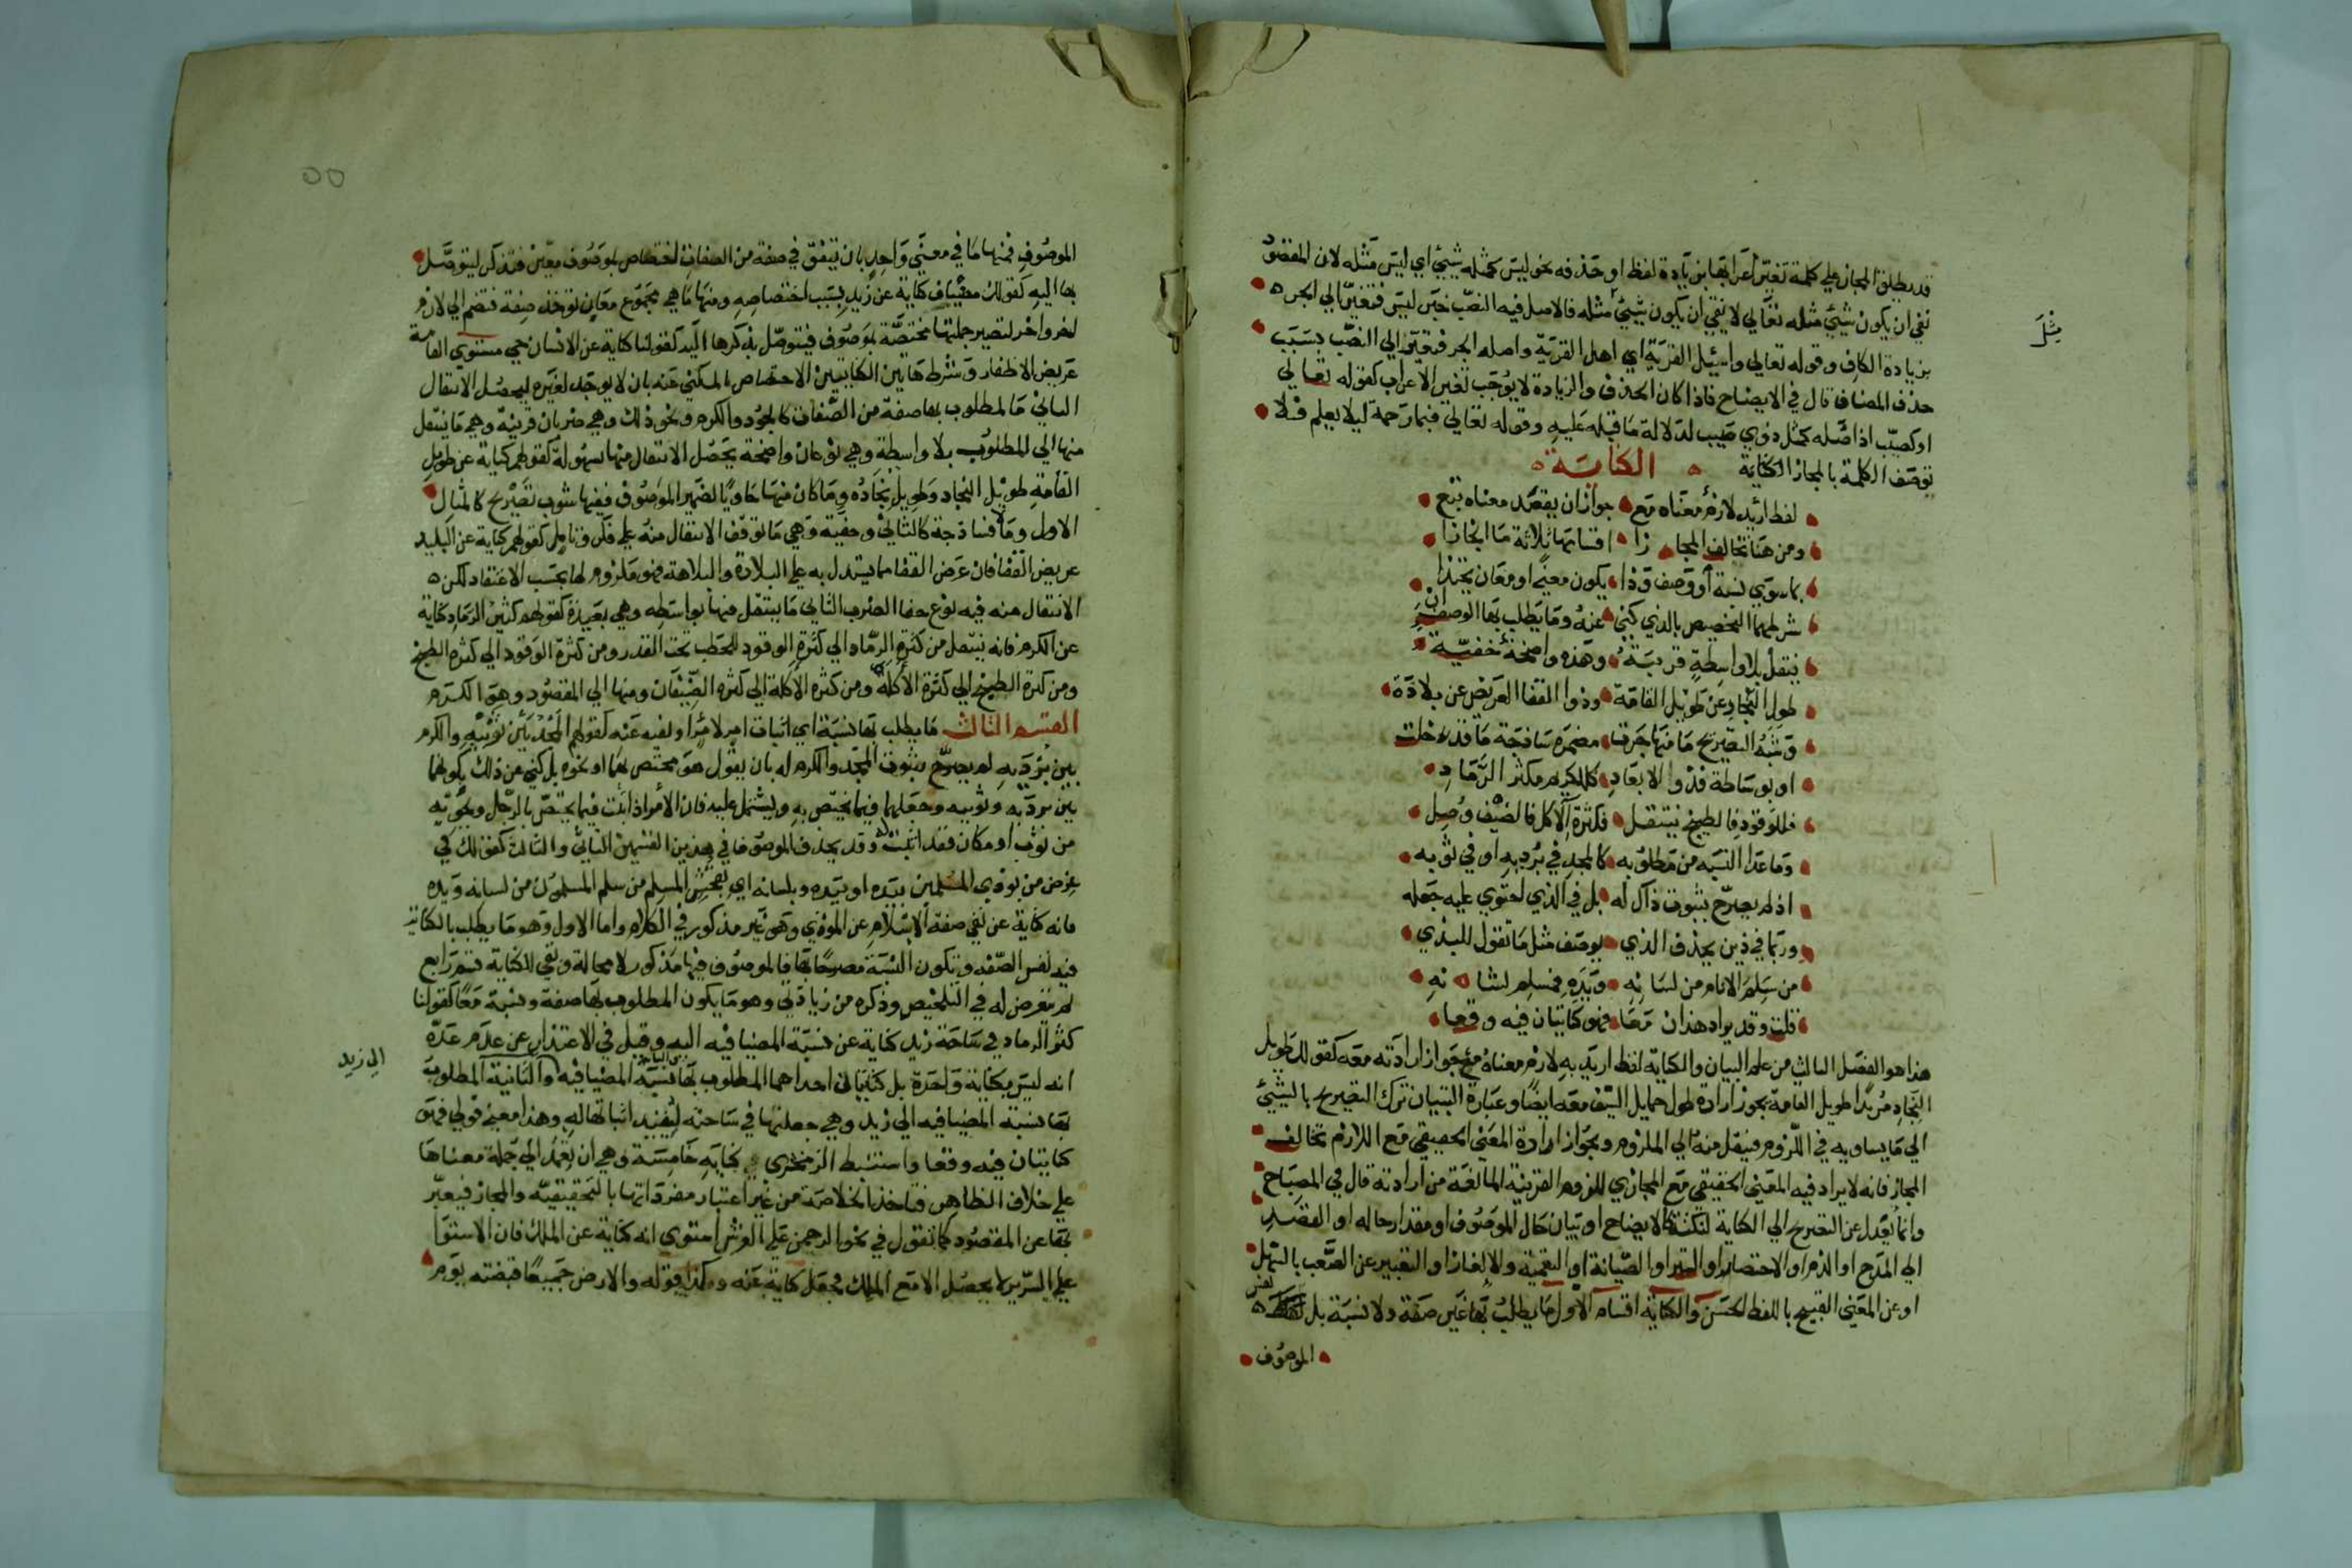 قد يطلق المجاز علي كلمة تغير اعرابها بزيادة لفظ او حذفه نحو ليس كمثله شيئ اي ليس مثله لان المقصود
نفي ان يكون شيئ مثله تعالي لا نفي ان يكون شيئ مثل مثله فالاصل فيه النصب خبر ليس فتغير الي الجر
بزيادة الكاف وقوله تعالي واسئل القرية اي اهل القرية واصله الجر فتغير الي النصب بسبب
حذف المضاف قال في الايضاح فاذا كان الحذف والزيادة لا يوجب تغير الاعراب كقوله تعالي
او كصيب اذ اصله كمثل ذوي صيب لدلالة ما قبله عليه وقوله تعالي فبما رحمة ليلا يعلم فلا
توصف الكلمة بالمجاز الكناية الكناية
لفظ اريد لازم معناه مع جواز ان يقصد معناه تبع
ومن هنا تخالف المجازا اقسامها ثلاثة ما انحازا
بما سوي نسبة او وصف وذا يكون معني او معان تحتذا
شرطهما التخصيص بالذي كني عنه وما يطلب بها الوصف ان
ينتقل بلا واسطة قريبة وهذه واضحة خفية
طول النجاد عن طويل القامة وذوا القفا العريض عن بلادة
وشبه التصريح ما منها حوت مضمره ساذجة ما قد خلت
او بوساطة فذوا الابعاد كالكريم مكثر الرماد
فللوقود فالطبيخ ينتقل فكثرة الاكل فالضيف وصل
وما عدا النسبه من مطلوبه كالمجد في برديه او في ثوبه
اذ لم يصرح بثبوت ذا له بل في الذي احتوي عليه جعله
وربما في ذين يحذف الذي يوصف مثل ما تقول للبذي
من سلم الانام من لسانه ويده فمسلم لشانه
قلت وقد يراد هذان معا فهو كنايتان فيه وقعا
هذا هو الفصل الثالث من علم البيان والكناية لفظ اريد به لازم معناه مع جواز ارادته معه كقولك طويل
النجاد مريدا طويل القامة يجوز ارادة طول حمايل السيف معه ايضا وعبارة التبيان ترك التصريح بالشيئ
الي ما يساويه في اللزوم فينتقل منه الي الملزوم وبجواز ارادة المعني الحقيقي مع اللازم تخالف
المجاز فانه لا يراد فيه المعني الحقيقي مع المجازي للزوم القرينة المانعة من ارادته قال في المصباح
وانما يعدل عن التصريح الي الكناية لنكتة كالايضاح او بيان حال الموصوف او مقدار حاله او القصد
الي المدح او الذم او الاختصار او الستر او الصيانة او التعمية والالغاز او التعبير عن الصعب بالسهل
او عن المعني القبيح باللفظ الحسن والكناية اقسام الاول ما يطلب بها غير صفة ولا نسبة بل نفس
الموصوف
مثل
الموصوف فمنها ما في معني واحد بان يتفق في صفة من الصفات اختصاص بموصوف معين فتذكر ليتوصل
بها اليه كقولك مضياف كناية عن زيد بسبب اختصاصه ومنها ما هي مجموع معان تؤخذ صفة فتضم الي لازم
اخر واخر لتصير جملتها مختصة بموصوف فيتوصل بذكرها اليه كقولنا كناية عن الانسان حي مستوي القامة
عريض الاظفار وشرط هاتين الكنايتين الاختصاص بالمكني عنه بان لا يوجد لغيره ليحصل الانتقال
الثاني ما المطلوب بها صفة من الصفات كالجود والكرم ونحو ذلك وهي ضربان قريبة وهي ما ينتقل
منها الي المطلوب بلا واسطة وهي نوعان واضحة يحصل الانتقال منها بسهولة كقولهم كناية عن طويل
القامة طويل النجاد وطويل نجاده وما كان منها حاويا لضمير الموصوف ففيها شوب تصريح كالمثال
الاول وما لا فساذجة كالثاني وخفية وهي ما توقف الانتقال منه علي فكر وتامل كقولهم كناية عن البليد
عريض القفا فان عرض القفا مما يستدل به علي البلادة والبلاهة فهو ملزوم لها بحسب الاعتقاد لكن
الانتقال منه فيه نوع خفا الضرب الثاني ما ينتقل منها بواسطه وهي بعيدة كقولهم كثير الرماد كناية
عن الكرم فانه ينتقل من كثرة الرماد الي كثرة الوقود للحطب تحت القدر ومن كثرة الوقود الي كثرة الطبخ
ومن كثرة الطبخ الي كثرة الاكلة ومن كثرة الاكلة الي كثره الضيفان ومنها الي المقصود وهو الكرم
القسم الثالث ما يطلب بها نسبة اي اثبات امر لامر او نفيه عنه كقولهم المجد بين ثوبيه والكرم
بين برديه لم يصرح بثبوت المجد والكرم له بان يقول هو مختص بهما او نحوه بل كني عن ذلك بكونهما
بين برديه وثوبيه وجعلهما فيما يختص به ويشتمل عليه فان الامر اذا اثبت فيما يختص بالرجل ويحويه
من ثوب او مكان فقد اثبت له وقد يحذف الموصوف في هذين القسمين الثاني والثالث كقولك في
عرض من يوذي المسلمين بيده او بيده وبلسانه اي المسلم من سلم المسلمون من لسانه ويده
فانه كناية عن نفي صفة الاسلام عن الموذي وهو غير مذكور في الكلام واما الاول وهو ما يطلب بالكناية
فيه نفس الصفه وتكون النسبة مصرحا بها فالموصوف فيها مذكور لا محالة وبقي للكناية قسم رابع
لم يتعرض له في التلخيص وذكره من زيادتي وهو ما يكون المطلوب بها صفة ونسبة معا كقولنا
كثر الرماد في ساحة زيد كناية عن نسبة المضيافيه اليه وقيل في الاعتذار عن عدم عده
انه ليس بكناية واحدة بل كنايتان احداهما المطلوب بها نسبة المضيافيه والثانية المطلوب
بها نسبة المضيافيه الي زيد وهي جعلتها في ساحته ليفيد اثباتها له وهذا معني قولي فهو
كنايتان فيه وقعا واستنبط الزمخشري كناية خامسة وهي ان تعمد الي جملة معناها
علي خلاف الظاهر فتاخذ الخلاصة من غير اعتبار مفرداتها بالحقيقيه والمجاز فيعبر
بها عن المقصود كما تقول في نحو الرحمن علي العرش استوي انه كناية عن الملك فان الاستوا
علي السرير لا يحصل الا مع الملك فجعل كناية عنه وكذا قوله والارض جميعا قبضته يوم
الي زيد